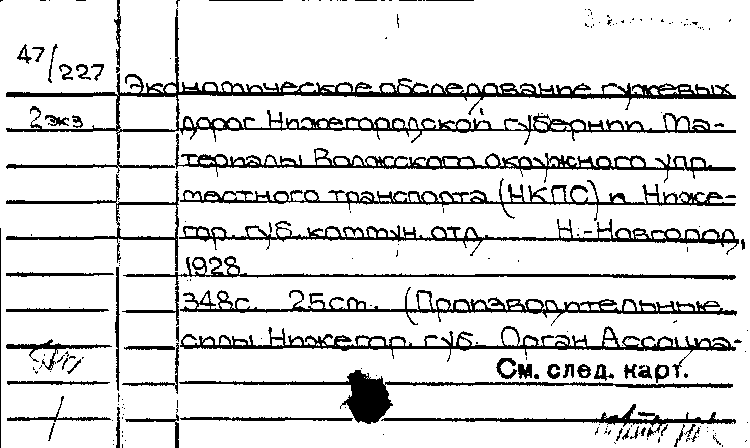 47/227
Экономическое обследование гужевых
2 экз. дорог Нижегородской губернии. Ма-
териалы Волжского окружного упр.
местного транспорта (НКПС) и Ниже-
гор. губ. коммун. отд. Н.-Новгород,
1928.
348 с. 25 см. (Производительные
силы Нижегор. губ. Орган Ассоциа-
См. след. карт.